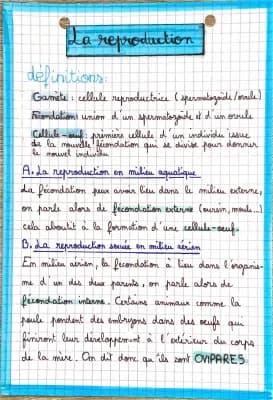 La reproduction
définitions:
Gamète : cellule reproductrice (spermatozoïde/ovule)
Fécondation: union d'un spermatozoïde et d'un ovule
Cellule-oeuf : première cellule d'un individu issue
de la nouvelle fécondation qui se divise pour donner
le nouvel individu
A. La reproduction en milieu aquatique
La fécondation peux avoir lieu dans le milieu externe,
on parle alors de fécondation externe (oursin, moule...)
cela aboutit à la formation d'une cellule-oeuf.
B. La reproduction sexuée en milieu aérien
En milieu aérien, la fécondation à lieu dans l'organis-
me d'un des deux parents, on parle alors de
fécondation interne. Certains animaux comme la
poule pendent des embryons dans des oeufs qui
finiront leur développement à l'extérieur du corps
de la mère. On dit donc qu'ils sont OVIPARES